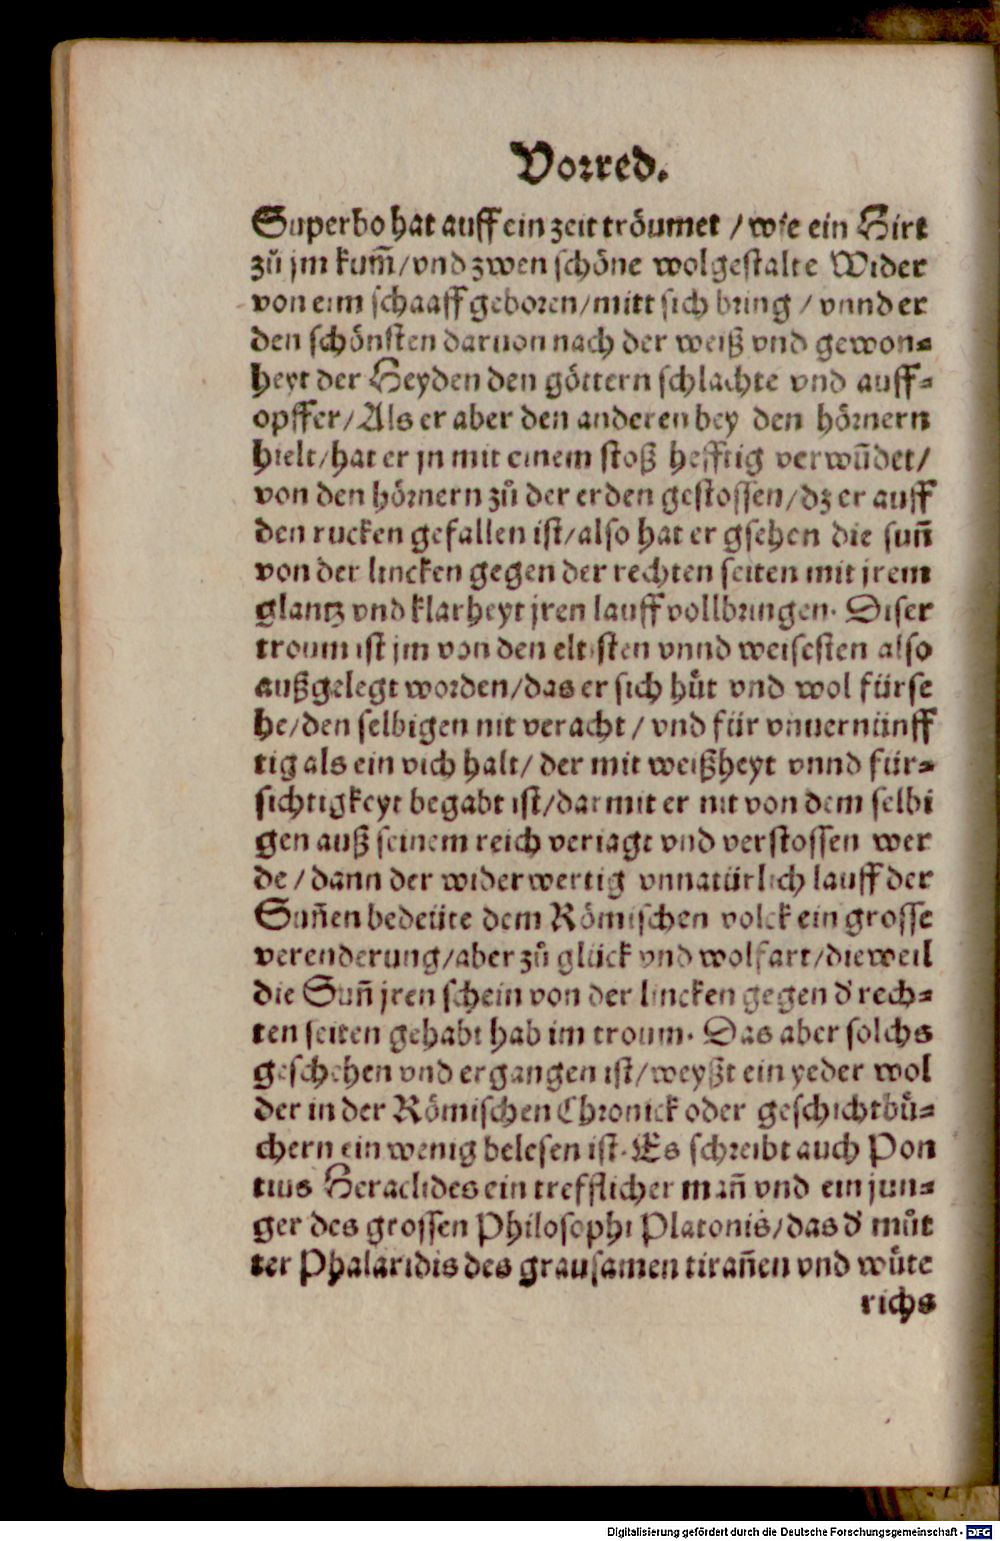 Vorred.
Superbo hat auff ein zeit tröumet / wie ein Hirt
zů jm kum̃/vnd zwen schöne wolgestalte Wider
von eim schaaff geboren/mitt sich bring / vnnd er
den schönsten daruon nach der weiß vnd gewon⸗
heyt der Heyden den göttern schlachte vnd auff⸗
opffer/Als er aber den anderen bey den hörnern
hielt/hat er jn mit einem stoß hefftig verwũdet/
von den hörnern zů der erden gestossen/dz er auff
den rucken gefallen ist/also hat er gsehen die suñ
von der lincken gegen der rechten seiten mit jrem
glantz vnd klarheyt jren lauff vollbringen. Diser
troum ist jm von den eltisten vnnd weisesten also
außgelegt worden/das er sich hůt vnd wol fürse
he/den selbigen nit veracht / vnd für vnuernünff
tig als ein vich halt/ der mit weißheyt vnnd für⸗
sichtigkeyt begabt ist/darmit er nit von dem selbi
gen auß seinem reich veriagt vnd verstossen wer
de / dann der widerwertig vnnatürlich lauff der
Suñen bedeüte dem Römischen volck ein grosse
verenderung/aber zů glück vnd wolfart/dieweil
die Suñ jren schein von der lincken gegen d' rech⸗
ten seiten gehabt hab im troum. Das aber solchs
geschehen vnd ergangen ist/weyßt ein yeder wol
der in der Römischen Chronick oder geschichtbů⸗
chern ein wenig belesen ist. Es schreibt auch Pon
tius Heraclides ein trefflicher mañ vnd ein jun⸗
ger des grossen Philosophi Platonis/das d' můt
ter Phalaridis des grausamen tirañen vnd wůte
richs
Digitalisierung gefördert durch die Deutsche Forschungsgemeinschaft - DFG